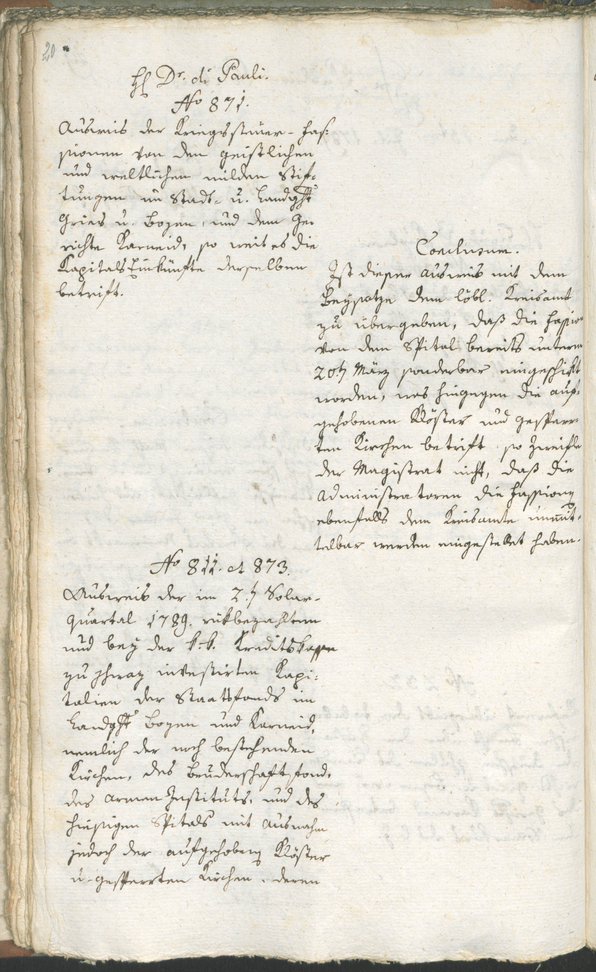 20
H Dr. di Pauli.
No 871.
Ausweis der Kriegssteuer-Fas-
sionen von den geistlichen
und weltlichen milden Stif-
tungen im Stadt- u. Landght
Gries u. Bozen, und dem Ge-
richte Karneid, so weit es die
Kapitals Einkünfte derselben
betrift.
Conclusum.
Ist dieser Ausweis mit dem
Beysatze dem löbl: Kreisamt
zu übergeben, daß die Fassion
von dem Spital bereits unterm
20t März sonderbar eingeschikt
worden, was hingegen die auf-
gehobenen Klöster und gesperr-
ten Kirchen betrift, so zweifle
der Magistrat nicht, daß die
Administratoren die Fassionen
ebenfalls dem Kreisamte unmit-
telbar werden eingestellet haben.
No 811. et 873.
Ausweis der im 2.t Solar-
quartal 1789. rükbezahlten
und bey der k:k. Kreditskasse
zu Schwaz investirten Kapi-
talien der Staatsfonds im
Landght Bozen und Karneid,
nemlich der noch bestehenden
Kirchen, des Bruderschaftsfonds,
des Armen Instituts, und des
hiesigen Spitals mit Ausnahm
jedoch der aufgehobenen Klöster
u. gesperrten Kirchen, deren